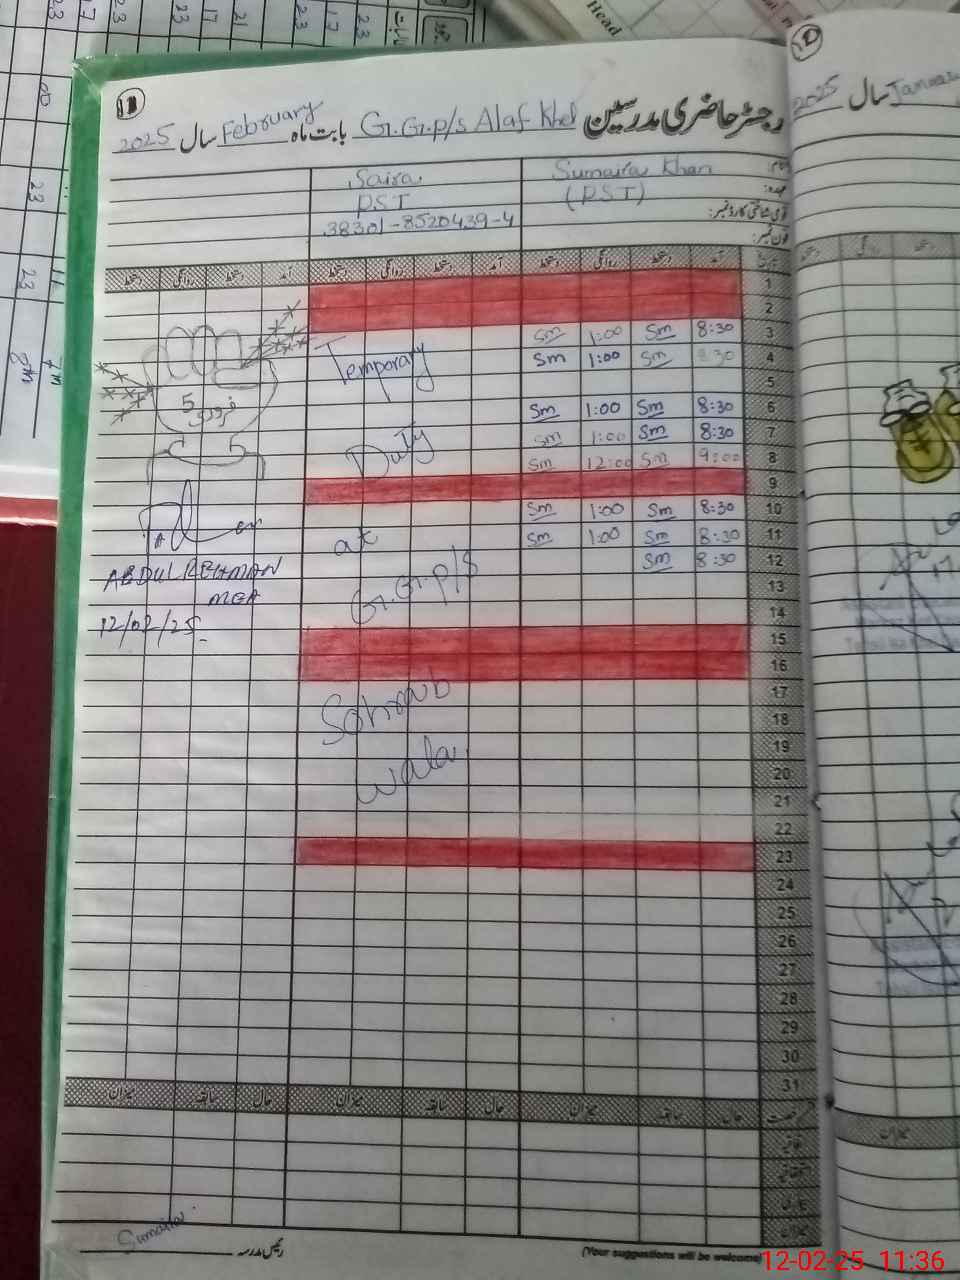 11
رجسٹر حاضری مدرسین G.G.P/S Alaf Khel بابت ماہ February سال 2025
نام: Sumaira Khan Saira
عہدہ: (PST) PST
قومی شناختی کارڈ نمبر: 38301-8520439-4
فون نمبر:
تاریخ آمد دستخط روانگی دستخط آمد دستخط روانگی دستخط آمد دستخط روانگی دستخط
1
2
3 8:30 Sm 1:00 Sm
4 8:30 Sm 1:00 Sm
5
6 8:30 Sm 1:00 Sm
7 8:30 Sm 1:00 Sm
8 9:00 Sm 12:00 Sm
9
10 8:30 Sm 1:00 Sm
11 8:30 Sm 1:00 Sm
12 8:30 Sm
13
14
15
16
17
18
19
20
21
22
23
24
25
26
27
28
29
30
31
Temporary
Duty
at
G.G.P/S
Sohrab
wala
5 فروری
ABDUL REHMAN
MEA
12/02/25
رخصت حال سابقہ میزان حال سابقہ میزان حال سابقہ میزان
اتفاقیہ
Sumaira
رئیس مدرسہ
(Your suggestions will be welcome)
10
2025 سال January
Head
12-02-25 11:36